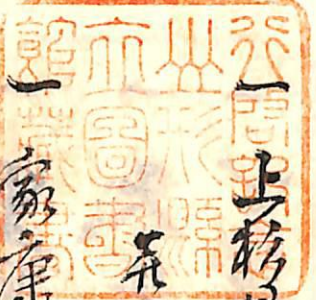 行啓
山形縣
立圖書
館藏書
一上杉
并
一家康